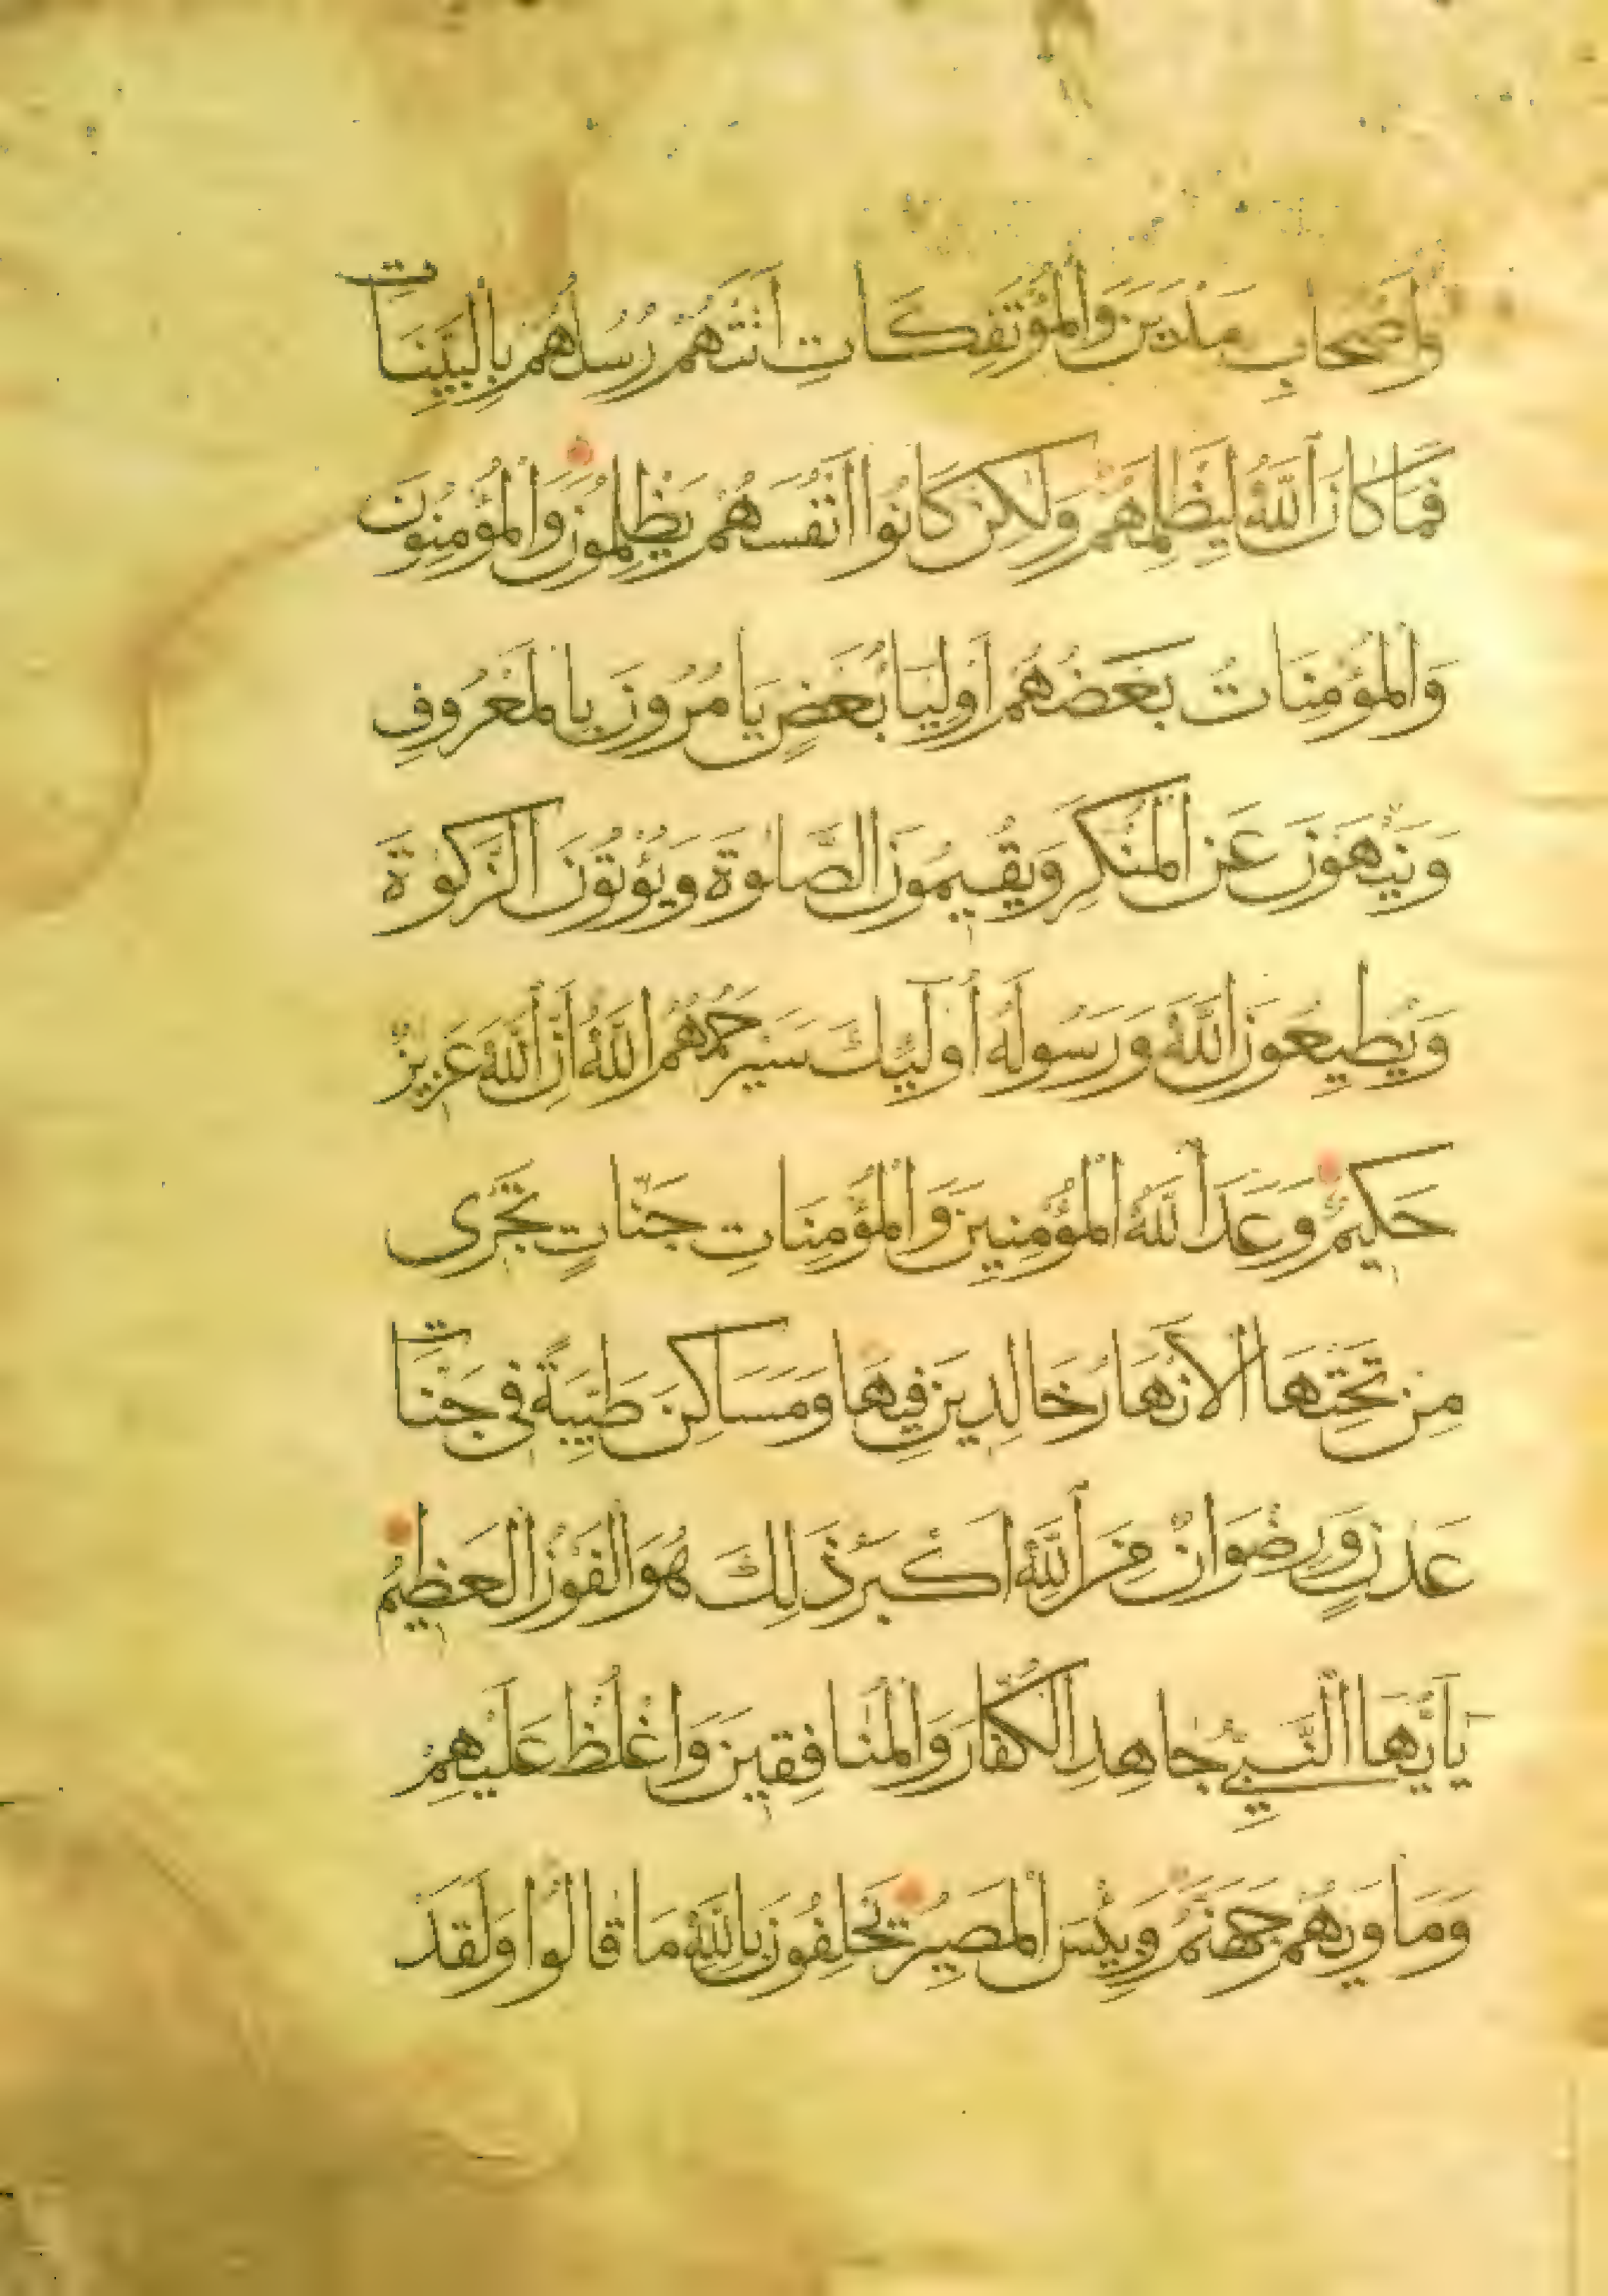 وَأَصْحَابِ مَدْيَنَ وَالْمُؤْتَفِكَاتِ أَتَتْهُمْ رُسُلُهُمْ بِالْبَيِّنَاتِ
فَمَا كَانَ اللَّهُ لِيَظْلِمَهُمْ وَلَٰكِنْ كَانُوا أَنْفُسَهُمْ يَظْلِمُونَ وَالْمُؤْمِنُونَ
وَالْمُؤْمِنَاتُ بَعْضُهُمْ أَوْلِيَاءُ بَعْضٍ يَأْمُرُونَ بِالْمَعْرُوفِ
وَيَنْهَوْنَ عَنِ الْمُنْكَرِ وَيُقِيمُونَ الصَّلَوٰةَ وَيُؤْتُونَ الزَّكَوٰةَ
وَيُطِيعُونَ اللَّهَ وَرَسُولَهُ أُولَٰئِكَ سَيَرْحَمُهُمُ اللَّهُ إِنَّ اللَّهَ عَزِيزٌ
حَكِيمٌ وَعَدَ اللَّهُ الْمُؤْمِنِينَ وَالْمُؤْمِنَاتِ جَنَّاتٍ تَجْرِى
مِنْ تَحْتِهَا الْأَنْهَارُ خَالِدِينَ فِيهَا وَمَسَاكِنَ طَيِّبَةً فِى جَنَّاتِ
عَدْنٍ وَرِضْوَانٌ مِنَ اللَّهِ أَكْبَرُ ذَٰلِكَ هُوَ الْفَوْزُ الْعَظِيمُ
يَا أَيُّهَا النَّبِىُّ جَاهِدِ الْكُفَّارَ وَالْمُنَافِقِينَ وَاغْلُظْ عَلَيْهِمْ
وَمَأْوَيٰهُمْ جَهَنَّمُ وَبِئْسَ الْمَصِيرُ يَحْلِفُونَ بِاللَّهِ مَا قَالُوا وَلَقَدْ